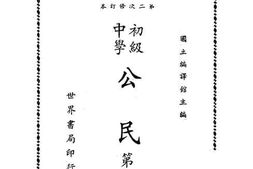 第二次修訂本
國立編譯館主編
初級
中學
公民
第
世界書局印行